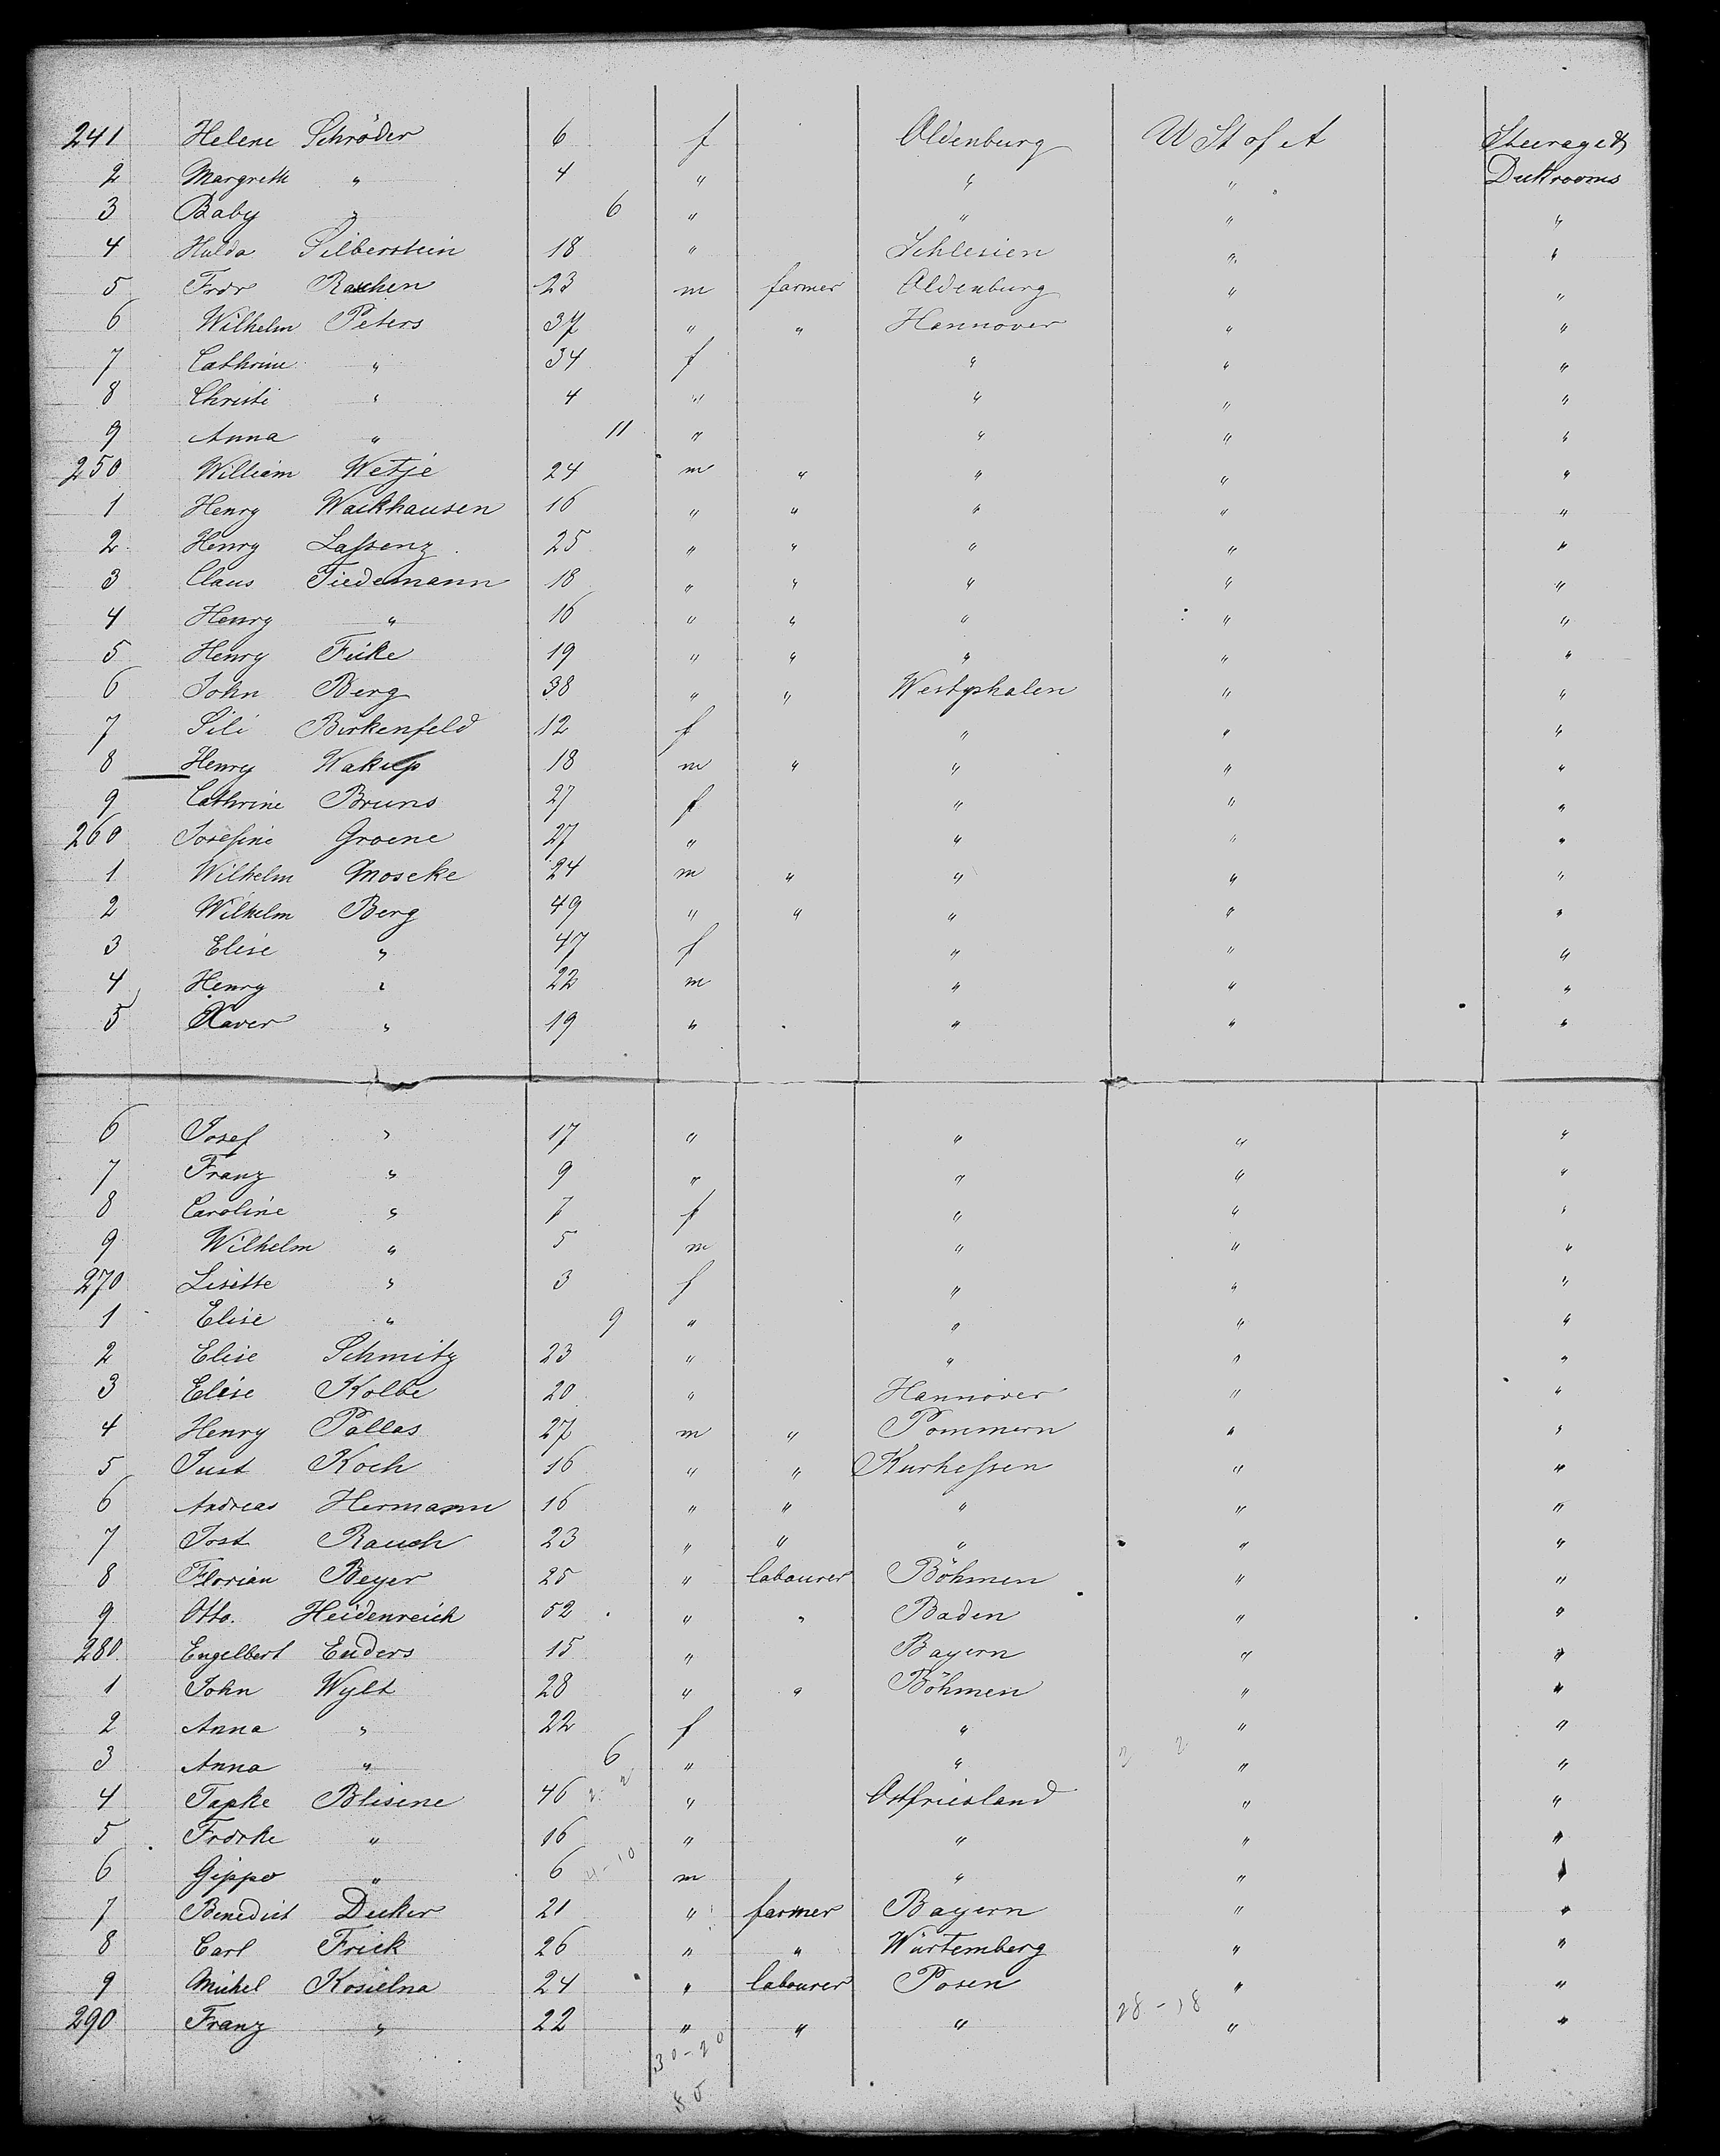 241 Helene Schröder 6 f Oldenburg U St of A Steerage &
2 Margreth " 4 " " " Deckrooms
3 Baby " 6 " " " "
4 Hulda Silberstein 18 " Schlesien " "
5 Frdr Raschen 23 m farmer Oldenburg " "
6 Wilhelm Peters 37 " " Hannover " "
7 Cathrine " 34 f " " "
8 Christi " 4 " " " "
9 Anna " 11 " " " "
250 William Wetje 24 m " " " "
1 Henry Wackhausen 16 " " " " "
2 Henry Lassenz 25 " " " " "
3 Claus Tiedemann 18 " " " " "
4 Henry " 16 " " " " "
5 Henry Ficke 19 " " " " "
6 John Berg 38 " " Westphalen " "
7 Sili Birkenfeld 12 f " " "
8 Henry 18 m " " " "
9 Cathrine Bruns 27 f " " "
260 Josefine Groene 27 " " " "
1 Wilhelm Moseke 24 m " " " "
2 Wilhelm Berg 49 " " " " "
3 Elise " 47 f " " "
4 Henry " 22 m " " "
5 Xaver " 19 " " " "
6 Josef " 17 " " " "
7 Franz " 9 " " " "
8 Caroline " 7 f " " "
9 Wilhelm " 5 m " " "
270 Lisette " 3 f " " "
1 Elise " 9 " " " "
2 Elise Schmitz 23 " " " "
3 Elise Kolbe 20 " Hannover " "
4 Henry Pallas 27 m " Pommern " "
5 Just Koch 16 " " Kurhessen " "
6 Andreas Hermann 16 " " " " "
7 Jost Rauch 23 " " " " "
8 Florian Beyer 25 " labourer Böhmen " "
9 Otto. Heidenreich 52 " " Baden " "
280 Engelbert Enders 15 " Bayern " "
1 John Wylt 28 " " Böhmen " "
2 Anna " 22 f " " "
3 Anna " 6 " " " "
4 Tapke Blisene 46 " Ostfriesland " "
5 Frdrke " 16 " " " "
6 Gippo " 6 m " " "
7 Benedict Decker 21 " farmer Bayern " "
8 Carl Frick 26 " " Würtemberg " "
9 Michel Kosielna 24 " labourer Posen " "
290 Franz " 22 " " " 28-18 " "
30-20